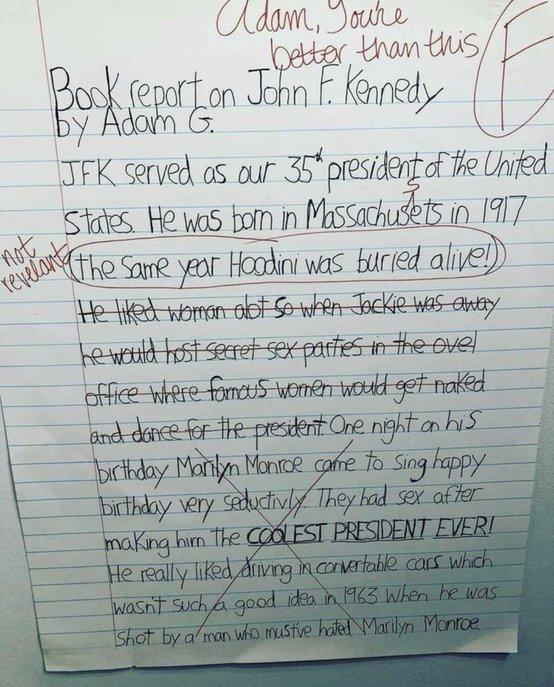 Adam, You're
better than this
F
Book report on John F. Kennedy
by Adam G.
JFK served as our 35th president of the United
t
States. He was born in Massachusets in 1917
not
revelant
(the same year Hoodini was buried alive!)
He liked woman alot so when Jackie was away
he would host secret sex parties in the ovel
office where famous women would get naked
and dance for the president. One night on his
birthday Marilyn Monroe came to sing happy
birthday very seductivly. They had sex after
making him the COOLEST PRESIDENT EVER!
He really liked driving in convertable cars which
wasn't such a good idea in 1963 when he was
shot by a man who mustive hated Marilyn Monroe.